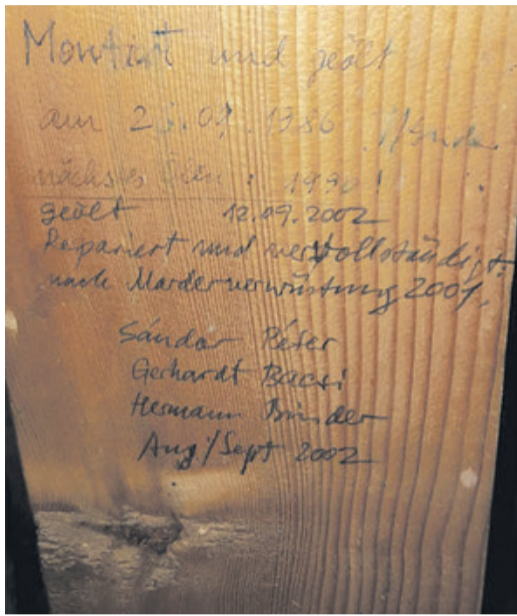 Montiert und geölt
am 26.09.1986
nächstes Ölen: 1990!
geölt 12.09.2002
Repariert und vervollständigt
nach Marderverwüstung 2001.
Sándor Péter
Gerhardt Bacsi
Hermann Binder
Aug/Sept 2002